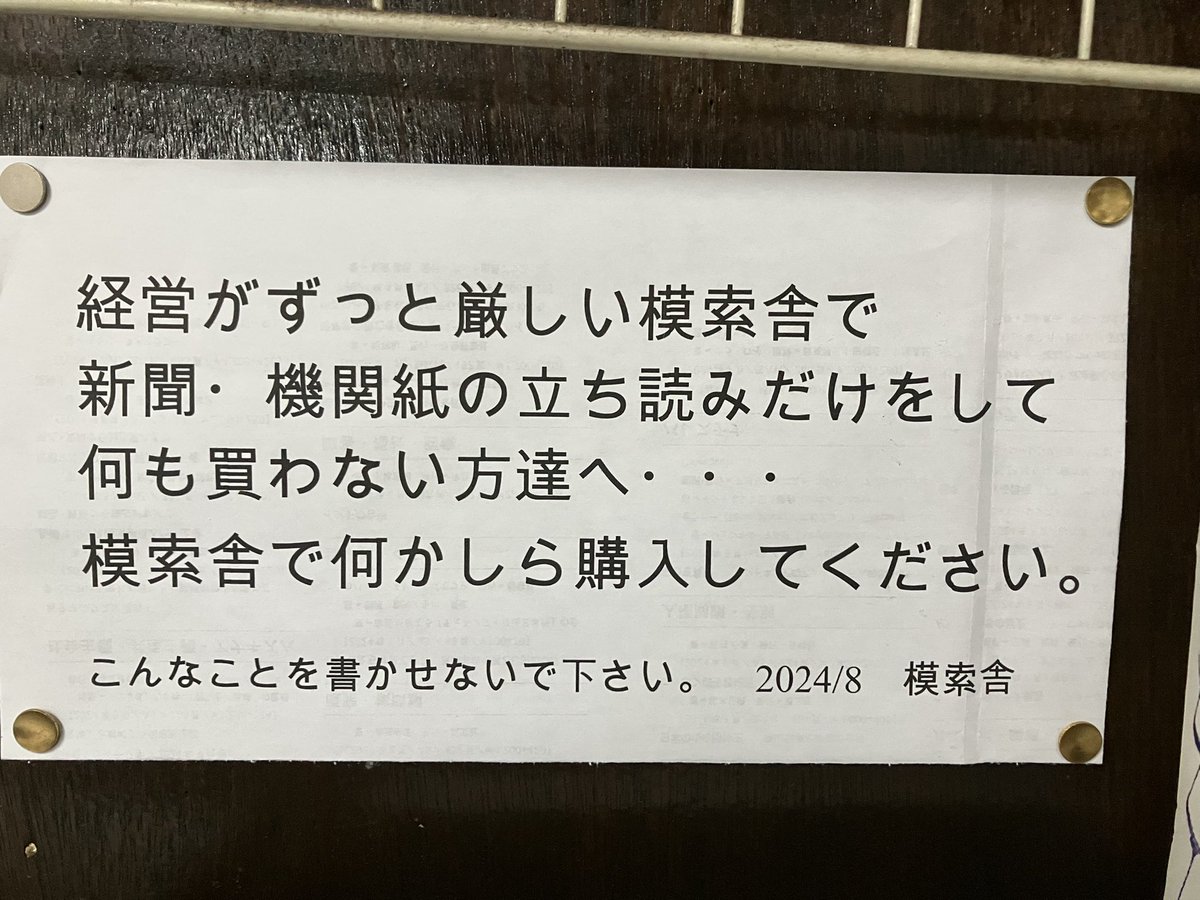 経営がずっと厳しい模索舎で
新聞・機関紙の立ち読みだけをして
何も買わない方達へ・・・
模索舎で何かしら購入してください。
こんなことを書かせないで下さい。　2024/8　模索舎